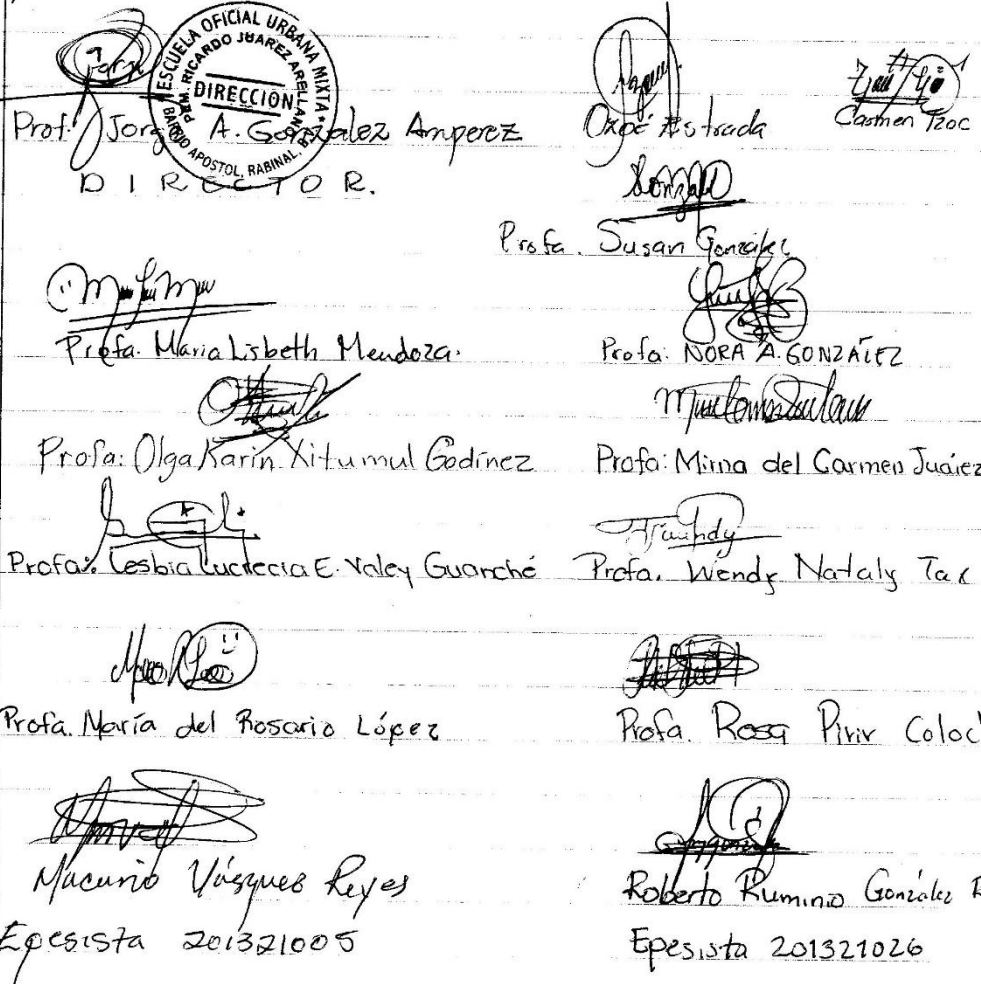 ESCUELA OFICIAL URBANA MIXTA
P.E.M. RICARDO JUAREZ ARELLANO
DIRECCIÓN
BARRIO APOSTOL, RABINAL, B.
Prof. Jorge A. González Amperez
DIRECTOR.
Estrada
Carmen Tzoc
Profa. Susan González
Profa. Maria Lisbeth Mendoza.
Profa: NORA A. GONZÁLEZ
Profa: Olga Karin Xitumul Godínez
Profa: Mirna del Carmen Juárez
Profa: Lesbia Lucrecia E. Valey Guarché
Profa. Wendy Nataly Tax
Profa. María del Rosario López
Profa. Rosa Piriv Coloc
Macario Vásquez Reyes
Epesista 201321005
Roberto Ruminio González R
Epesista 201321026